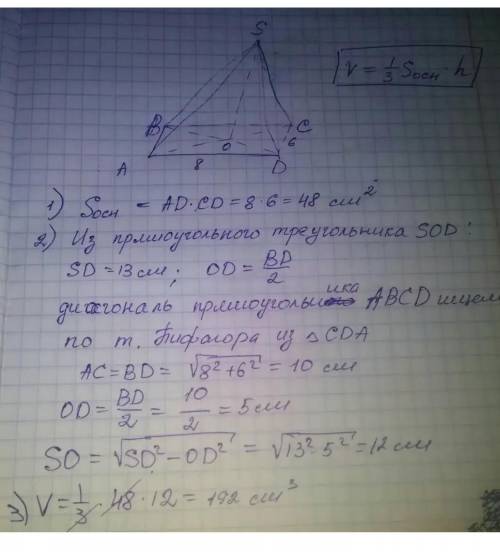 S
V = 1/3 Sосн · h
B
C
O
6
A
8
D
1) Sосн = AD·CD = 8·6 = 48 см²
2) Из прямоугольного треугольника SOD:
SD = 13 см; OD = BD/2
диагональ прямоугольника ABCD ищем
по т. Пифагора из △CDA
AC = BD = √8²+6² = 10 см
OD = BD/2 = 10/2 = 5 см
SO = √SD²-OD² = √13² 5² = 12 см
3) V = 1/3 · 48 · 12 = 192 см³